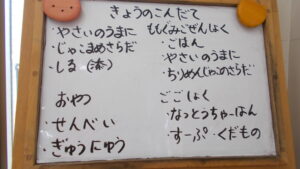 きょうのこんだて
・やさいのうまに
・じゃこまめさらだ
・しる
おやつ
・せんべい
・ぎゅうにゅう
ももぐみごぜんしょく
・ごはん
・やさいのうまに
・ちりめんじゃこのさらだ
ごごしょく
・なっとうちゃーはん
・すーぷ・くだもの